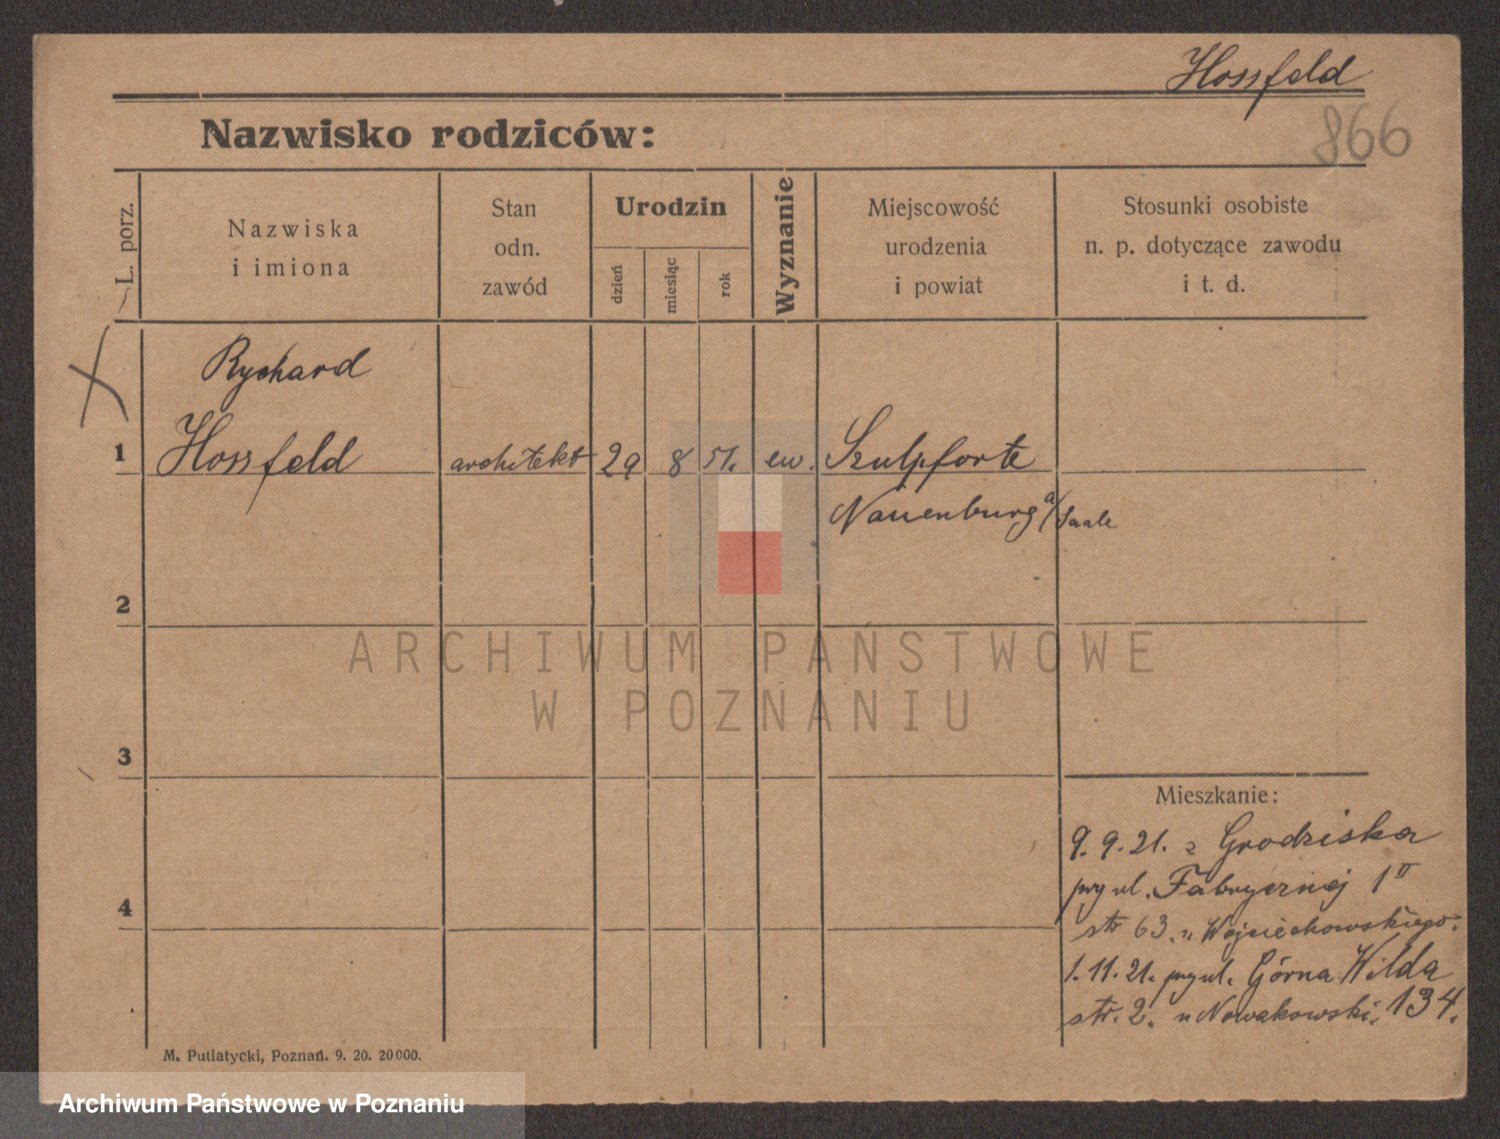 Hossfeld
866
Nazwisko rodziców:
L. porz.
Nazwiska
i imiona
Stan
odn.
zawód
Urodzin
dzień
miesiąc
rok
Wyznanie
Miejscowość
urodzenia
i powiat
Stosunki osobiste
n. p. dotyczące zawodu
i t. d.
Rychard
1 Hossfeld architekt 29 8 51. ew. Szulpforte
Nauenburg a/Saale
2
ARCHIWUM PAŃSTWOWE
W POZNANIU
3
Mieszkanie:
9.9.21. z Grodziska
przy ul. Fabrycznej 1 II
4
str 63. u Wojciechowskiego.
1.11.21. przy ul. Górna Wilda 134.
str. 2. u Nowakowski.
M. Putiatycki, Poznań. 9. 20. 20000.
Archiwum Państwowe w Poznaniu